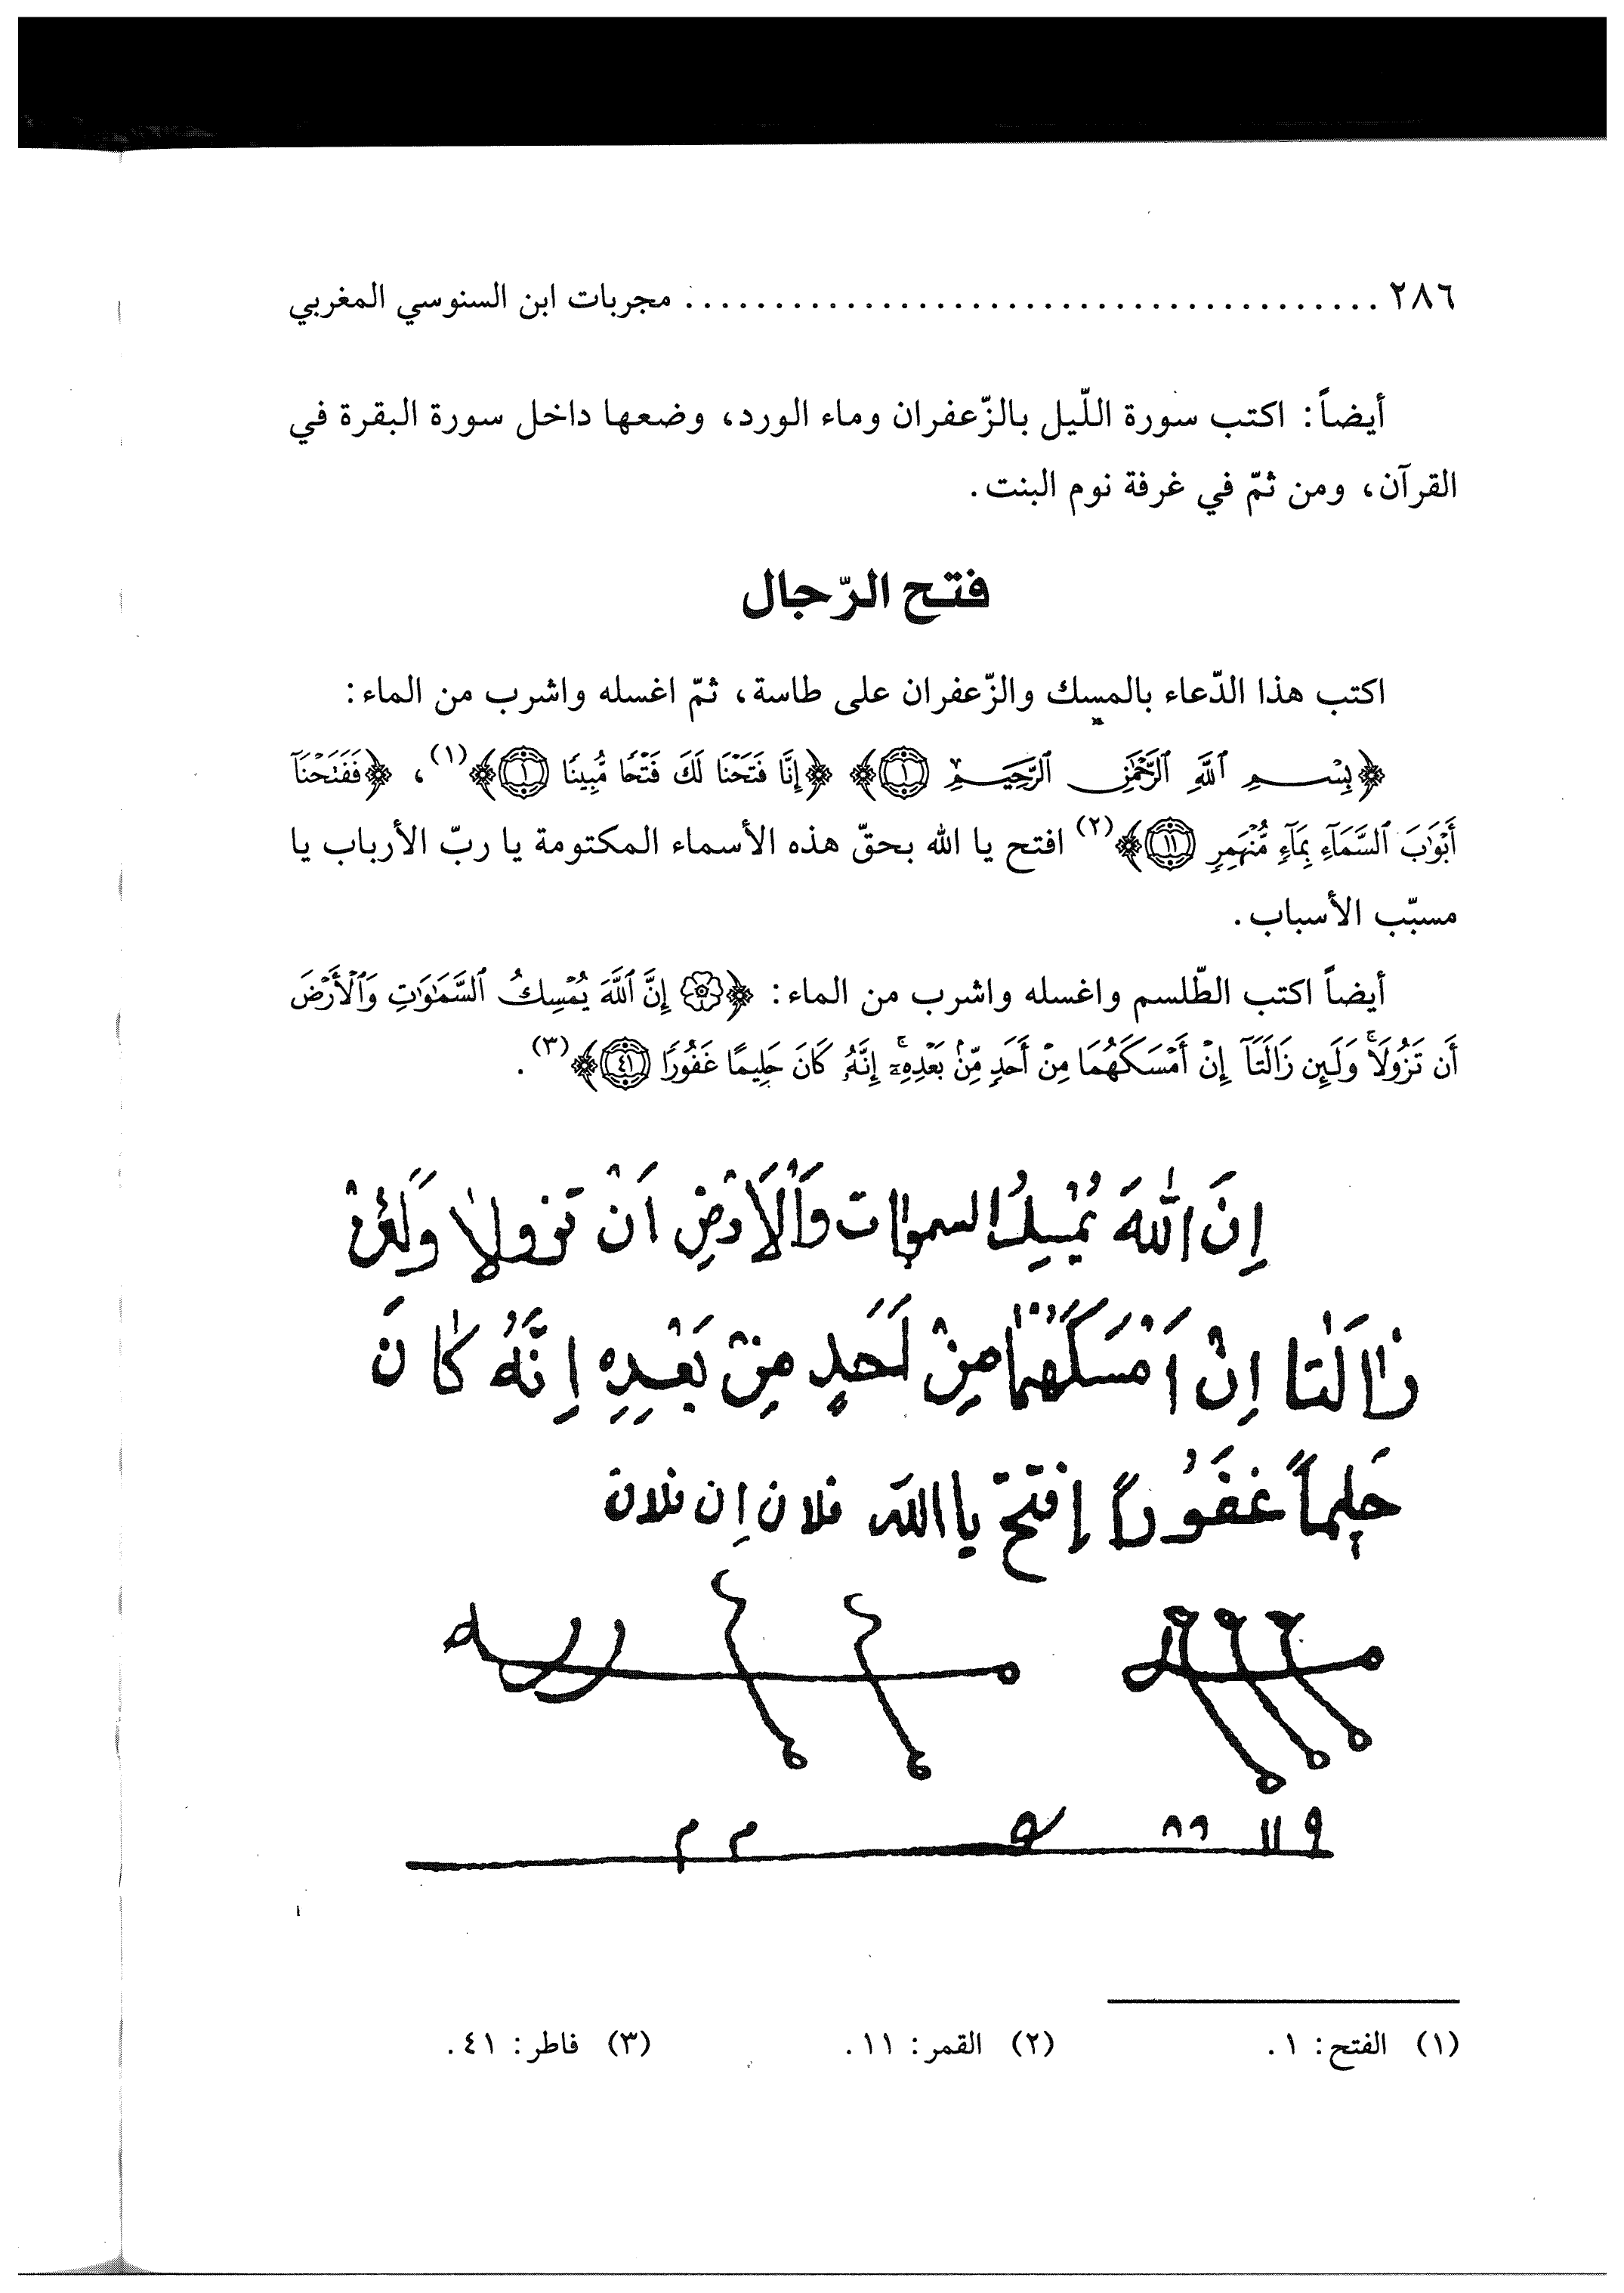 ٢٨٦ ........................................ مجربات ابن السنوسي المغربي
أيضاً: اكتب سورة اللّيل بالزّعفران وماء الورد، وضعها داخل سورة البقرة في
القرآن، ومن ثمّ في غرفة نوم البنت.
فتح الرّجال
اكتب هذا الدّعاء بالمسك والزّعفران على طاسة، ثمّ اغسله واشرب من الماء:
﴿بِسْمِ ٱللَّهِ ٱلرَّحْمَٰنِ ٱلرَّحِيمِ ١﴾ ﴿إِنَّا فَتَحْنَا لَكَ فَتْحًا مُّبِينًا ١﴾(١)، ﴿فَفَتَحْنَآ
أَبْوَٰبَ ٱلسَّمَآءِ بِمَآءٍ مُّنْهَمِرٍ ١١﴾(٢) افتح يا الله بحقّ هذه الأسماء المكتومة يا ربّ الأرباب يا
مسبّب الأسباب.
أيضاً اكتب الطّلسم واغسله واشرب من الماء: ﴿إِنَّ ٱللَّهَ يُمْسِكُ ٱلسَّمَٰوَٰتِ وَٱلْأَرْضَ
أَن تَزُولَاۚ وَلَئِن زَالَتَآ إِنْ أَمْسَكَهُمَا مِنْ أَحَدٍ مِّنۢ بَعْدِهِۦٓۚ إِنَّهُۥ كَانَ حَلِيمًا غَفُورًا ٤١﴾(٣).
اِنَ اللّٰهَ يُمْسِكُ السمٰوات وَاْلاَرْضِ اَنْ تزولا وَلَئِنْ
زٰالَتا اِنْ اَمْسَكَهُمٰا مِنْ اَحَدٍ مِنْ بَعْدِهِ اِنَّهُ كٰانَ
حَلِيماً غَفَوُراً اِفتَح يا اللّه فلان اِن فلان
(١) الفتح: ١. (٢) القمر: ١١. (٣) فاطر: ٤١.